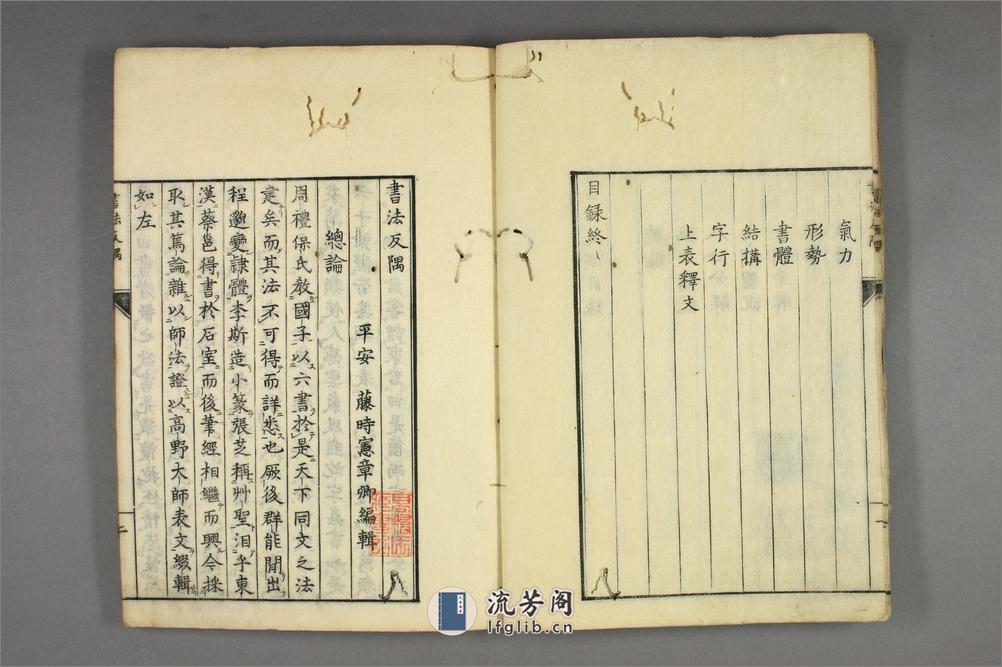 氣力
形勢
書體
結搆
字行
上表釋文
目録終
書法反隅
平安 藤時憲章卿編輯
總論
周禮保氏敎國子以六書於是天下同文之法
寔矣而其法不可得而詳悉也厥後群能閒出
程邈變隷體李斯造小篆張芝稱艸聖洎乎東
漢蔡邕得書於石室而後筆經相繼而興今採
取其篤論雜以師法證以高野大師表文綴輯
如左
書法反隅
二
流芳阁
lfglib.cn